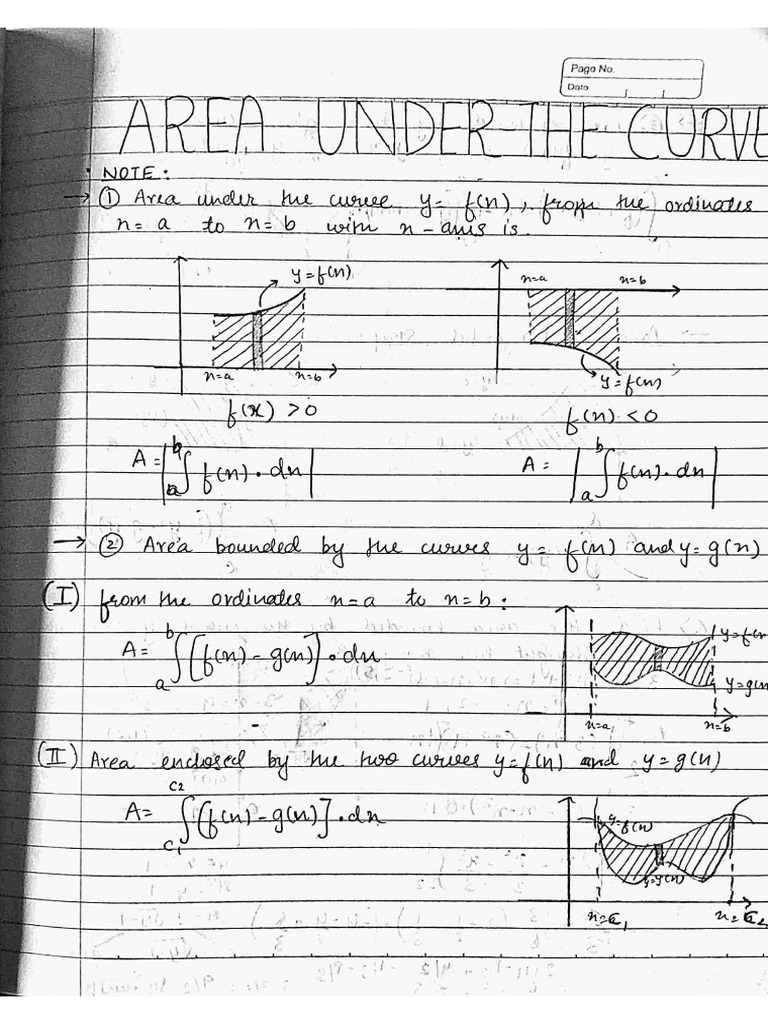 Page No.
Date
AREA UNDER THE CURVE
NOTE:
→ ① Area under the curve y = f(x), from the ordinates
x = a to x = b with x-axis is.
y = f(x)
x=a x=b
x=a x=b
y = f(x)
f(x) > 0
f(x) < 0
A = |a∫b f(x)·dx|
A = |a∫b f(x)·dx|
→ ② Area bounded by the curves y = f(x) and y = g(x)
(I) from the ordinates x=a to x=b:
A = a∫b [f(x) - g(x)]·dx
y=f(x
y=g(x
x=a x=b
(II) Area enclosed by the two curves y=f(x) and y=g(x)
A = c1∫c2 (f(x) - g(x)]·dx
y=f(x)
y=g(x)
x=c1 x=c2